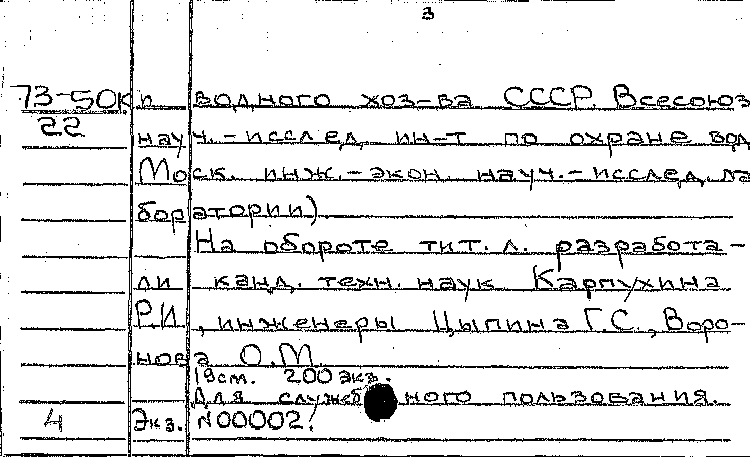 3
73-50к п водного хоз-ва СССР. Всесоюз
22 науч.-исслед. ин-т по охране вод
Моск. инж.-экон. науч.-исслед. ла
боратории).
На обороте тит. л. разработа-
ли канд. техн. наук Карпухина
Р.И., инженеры Цыпина Г.С., Воро-
нова О.М.
19см. 200 экз.
Для служебного пользования.
4 Экз. N00002!